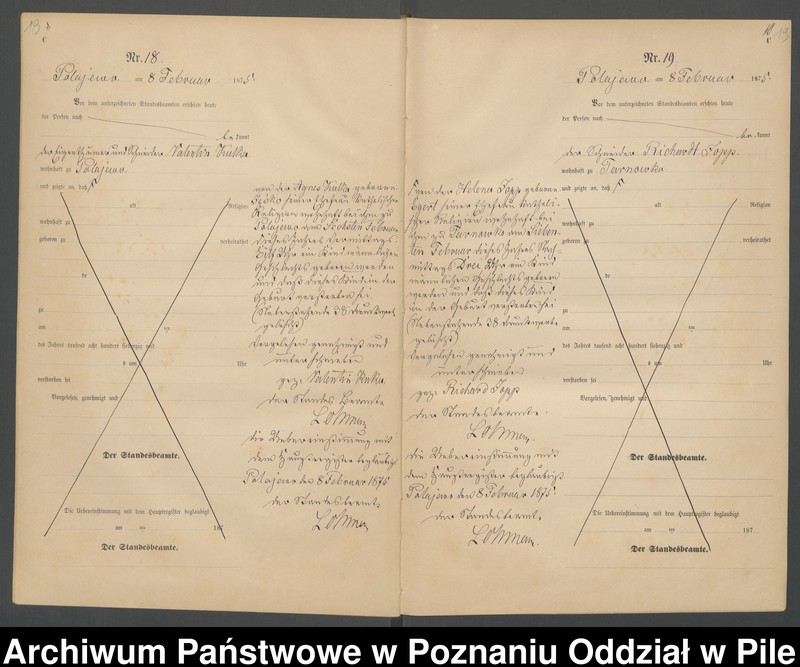 13
8
C
Nr. 18.
Polajewo am 8 Februar 1875.
Vor dem unterzeichneten Standesbeamten erschien heute
der Person nach
be kannt
der Eigenthümer und Schneider Valentin Kulka
wohnhaft zu Polajewo
und zeigte an, daß
alt Religion
wohnhaft zu
geboren zu
verheirathet
de
zu
am ten
des Jahres tausend acht hundert siebenzig und
um Uhr
verstorben sei
Vorgelesen, genehmigt und
Der Standesbeamte.
Die Uebereinstimmung mit dem Hauptregister beglaubigt
am ten 187
Der Standesbeamte.
von der Agnes Kulka geborene
seiner Ehefrau katholischer
Religion wohnhaft bei ihm zu
Polajewo am Sechsten Februar
dieses Jahres Vormittags
Uhr ein Kind männlichen
Geschlechts geboren worden
und daß dieses Kind in der
Geburt verstorben sei.
(Nebenstehende 38 Druckworte
gelöscht)
Vorgelesen genehmigt und
unterschrieben
gez. Valentin Kulka
der Standes Beamte
die Uebereinstimmung mit
dem Hauptregister beglaubigt
Polajewo den 8 Februar 1875
der Standesbeamte.
C
Nr. 19.
Polajewo am 8 Februar 1875.
Vor dem unterzeichneten Standesbeamten erschien heute
der Person nach
be kannt
der Schneider Richardt Topp.
wohnhaft zu Tarnowko
und zeigte an, daß
alt Religion
wohnhaft zu
geboren zu
verheirathet
de
zu
am ten
des Jahres tausend acht hundert siebenzig und
um Uhr
verstorben sei
Vorgelesen, genehmigt und
Der Standesbeamte.
Die Uebereinstimmung mit dem Hauptregister beglaubigt
am ten 187
Der Standesbeamte.
von der Helena Topp geborene
Egert seiner Ehefrau katholi-
scher Religion wohnhaft bei
ihm zu Tarnowko am Sieben-
ten Februar dieses Jahres Nach-
mittags Drei Uhr ein Kind
männlichen Geschlechts geboren
worden und daß dieses Kind
in der Geburt verstorben sei
(Nebenstehende 38 Druckworte
gelöscht)
Vorgelesen genehmigt und
unterschrieben
gez. Richard Topp
der Standesbeamte.
die Uebereinstimmung mit
dem Hauptregister beglaubigt
Polajewo den 8 Februar 1875
der Standesbeamte.
Archiwum Państwowe w Poznaniu Oddział w Pile